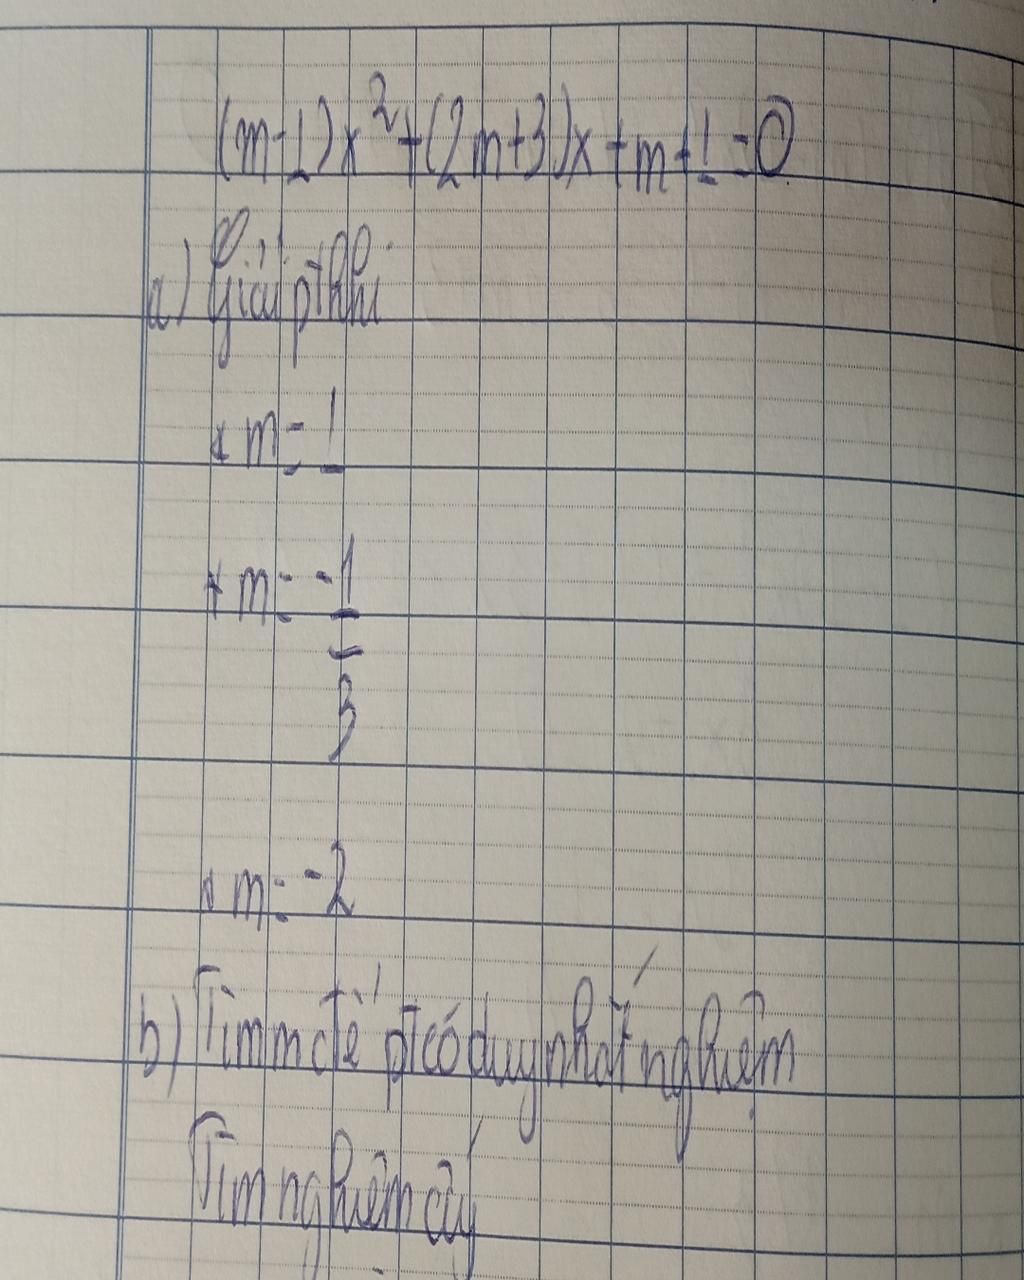 (m-1)x²+(2m+3)x+m+1=0
a) Giải pt khi
+ m=1
+ m= -1/3
+ m= -2
b) Tìm m để pt có duy nhất nghiệm
Tìm nghiệm đấy